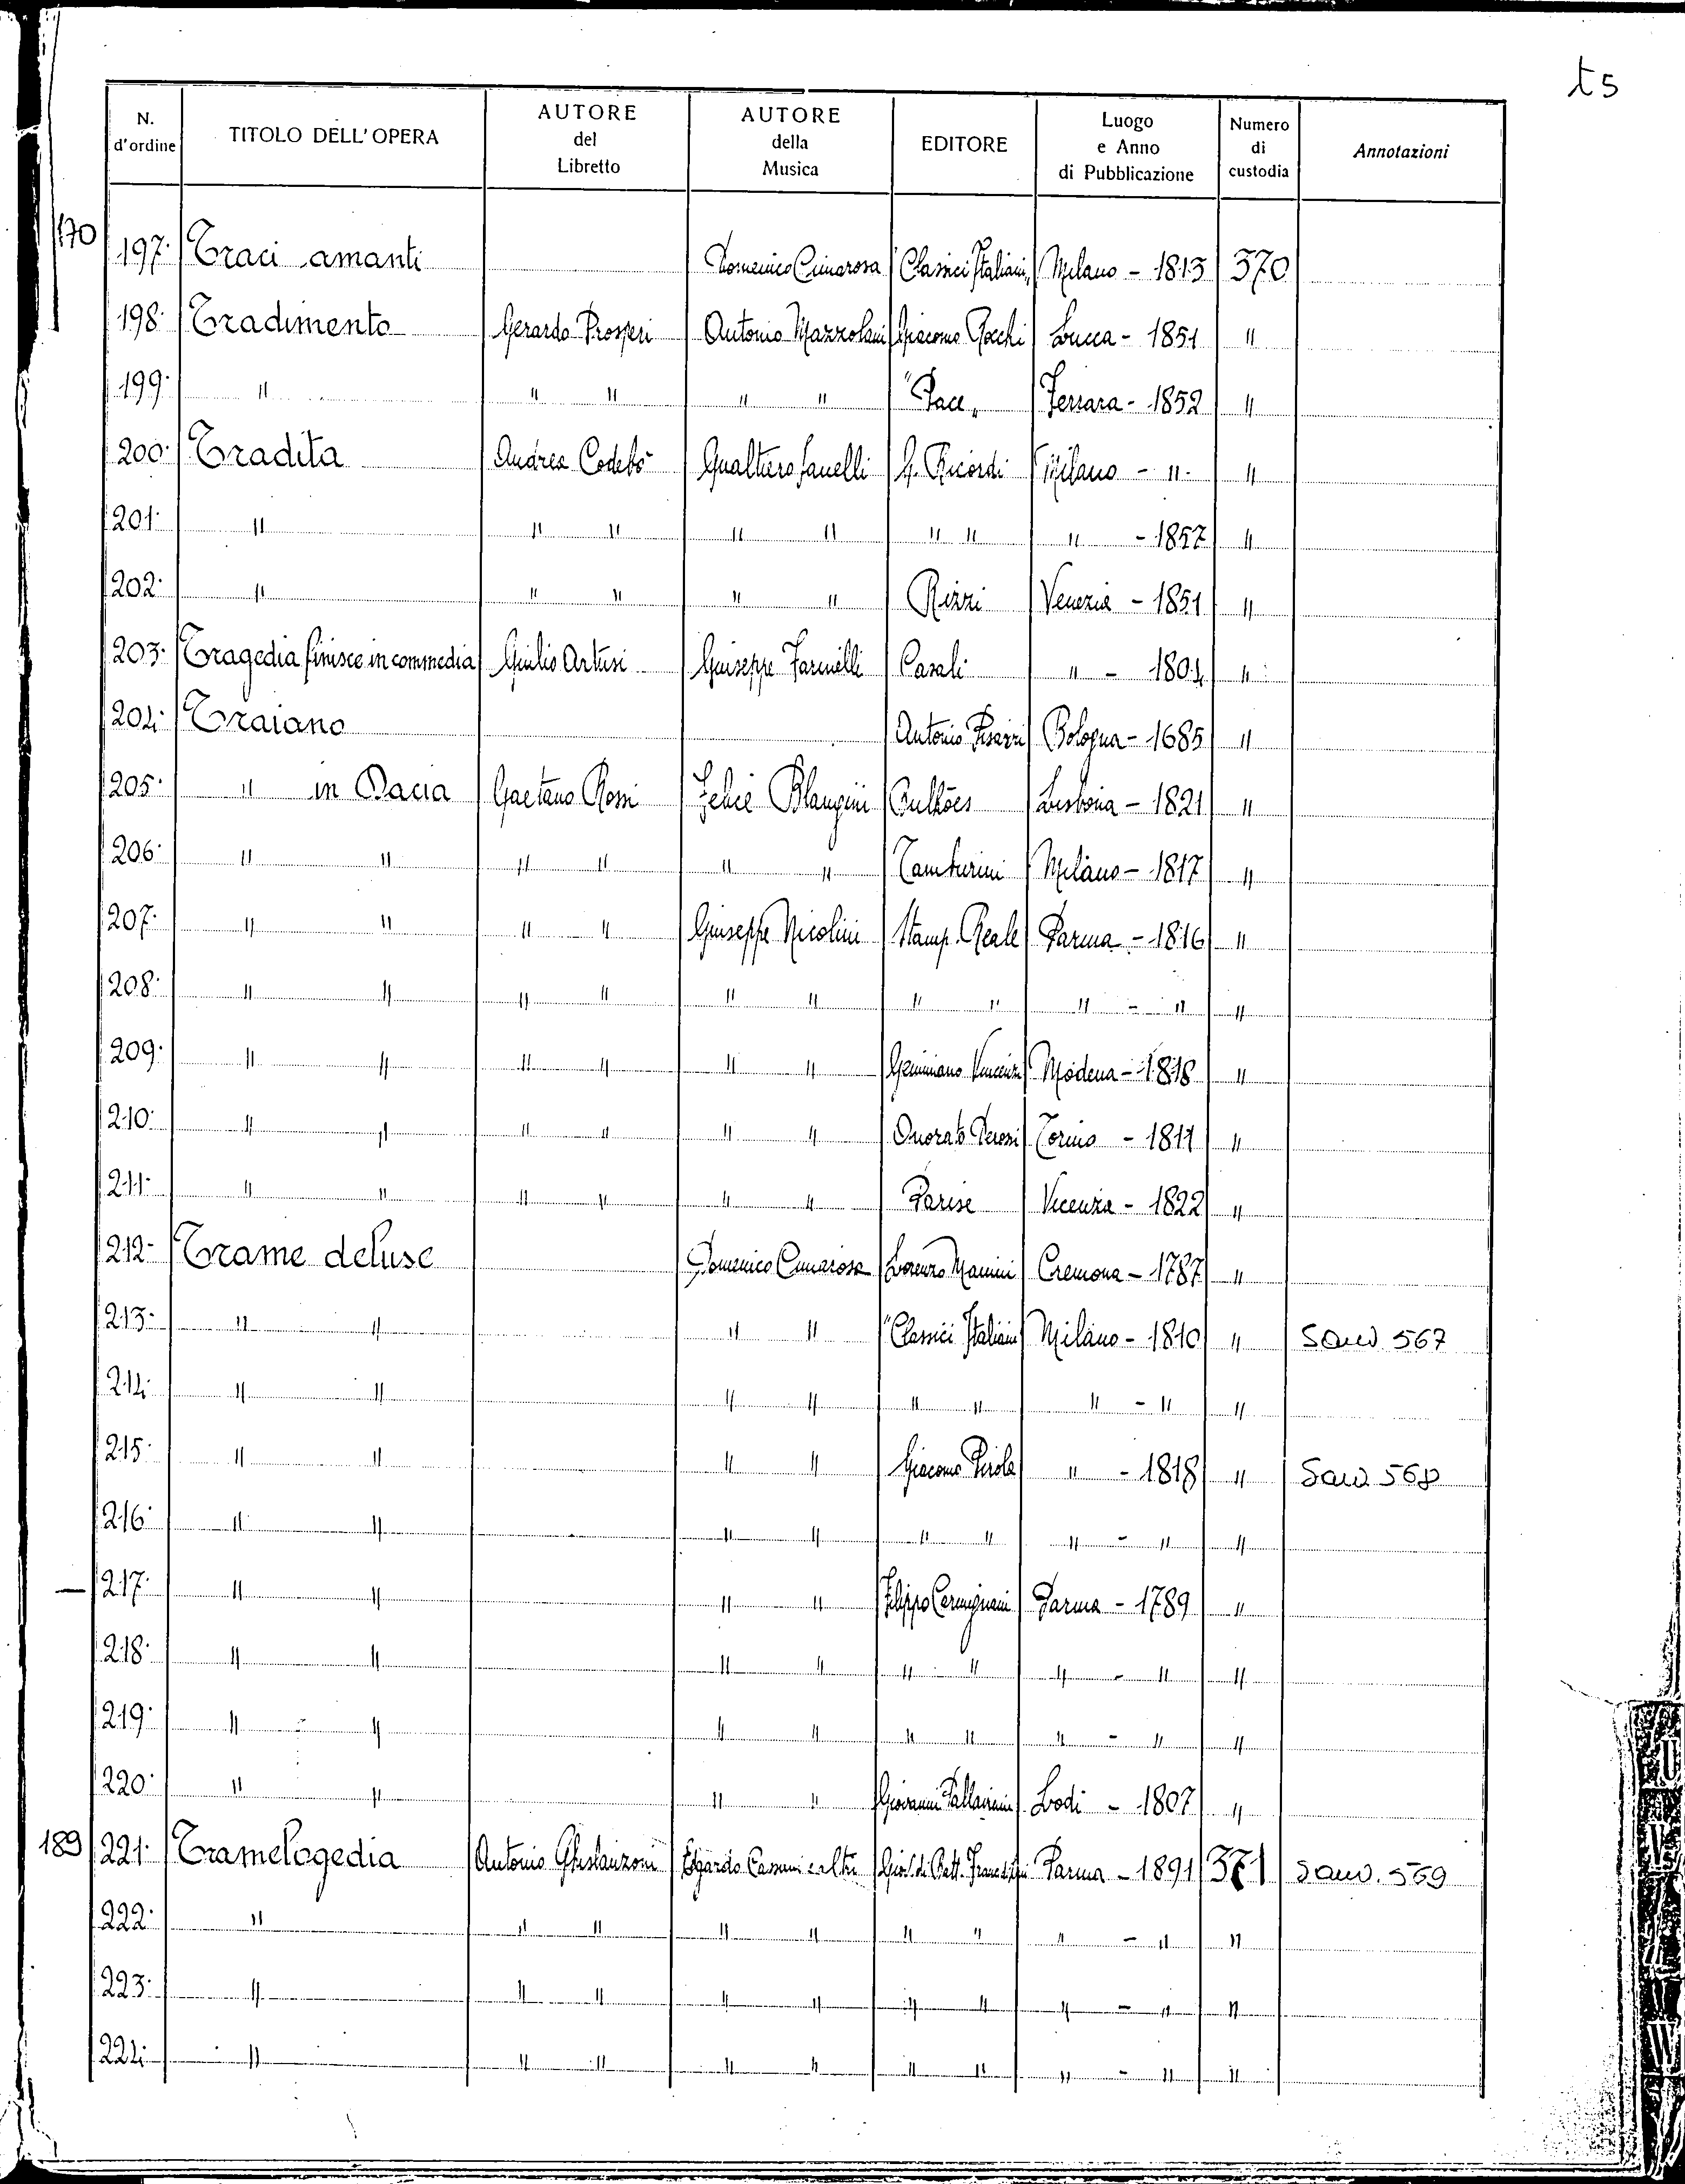 t5
N. d'ordine TITOLO DELL'OPERA AUTORE del Libretto AUTORE della Musica EDITORE Luogo e Anno di Pubblicazione Numero di custodia Annotazioni
170 197. Traci amanti Domenico Cimarosa "Classici Italiani„ Milano - 1813 370
198. Tradimento Gerardo Prosperi Antonio Mazzolani Giacomo Rocchi Lucca - 1851 "
199. " " " " " "Pace„ Ferrara - 1852 "
200. Tradita Andrea Codebò Gualtiero Sanelli G. Ricordi Milano - " "
201. " " " " " " " " - 1857 "
202. " " " " " Rizzi Venezia - 1851 "
203. Tragedia finisce in commedia Giulio Artusi Giuseppe Farinelli Casali " - 1804 "
204. Traiano Antonio Pisarri Bologna - 1685 "
205. " in Dacia Gaetano Rossi Felice Blangini Bulhões Lisbona - 1821 "
206. " " " " " " Tamburini Milano - 1817 "
207. " " " " Giuseppe Nicolini Stamp. Reale Parma - 1816 "
208. " " " " " " " " " - " "
209. " " " " " " Geminiano Vincenzi Modena - 1818 "
210. " " " " " " Onorato Derossi Torino - 1811 "
211. " " " " " " Parise Vicenza - 1822 "
212. Trame deluse Domenico Cimarosa Lorenzo Manini Cremona - 1787 "
213. " " " " "Classici Italiani Milano - 1810 " Sauv 567
214. " " " " " " " - " "
215. " " " " Giacomo Pirola " - 1818 " Sauv 568
216. " " " " " " " - " "
217. " " " " Filippo Carmignani Parma - 1789 "
218. " " " " " " " - " "
219. " " " " " " " - " "
220. " " " " Giovanni Pallavicini Lodi - 1807 "
189 221. Tramelogedia Antonio Ghislanzoni Edgardo Cassani e altri Giov. di Batt. Parma - 1891 371 Sauv. 569
222. " " " " " " " " - " "
223. " " " " " " " " - " "
224. " " " " " " " " - " "